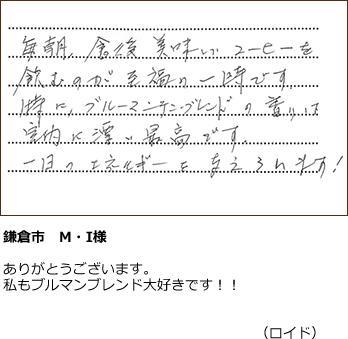 毎朝、食後美味しいコーヒーを
飲むのが至福の一時です。
特に、ブルーマンテンブレンドの香りは
室内に漂い最高です。
一日のエネルギーを与えられます!
鎌倉市　M・I様
ありがとうございます。
私もブルマンブレンド大好きです！！
（ロイド）